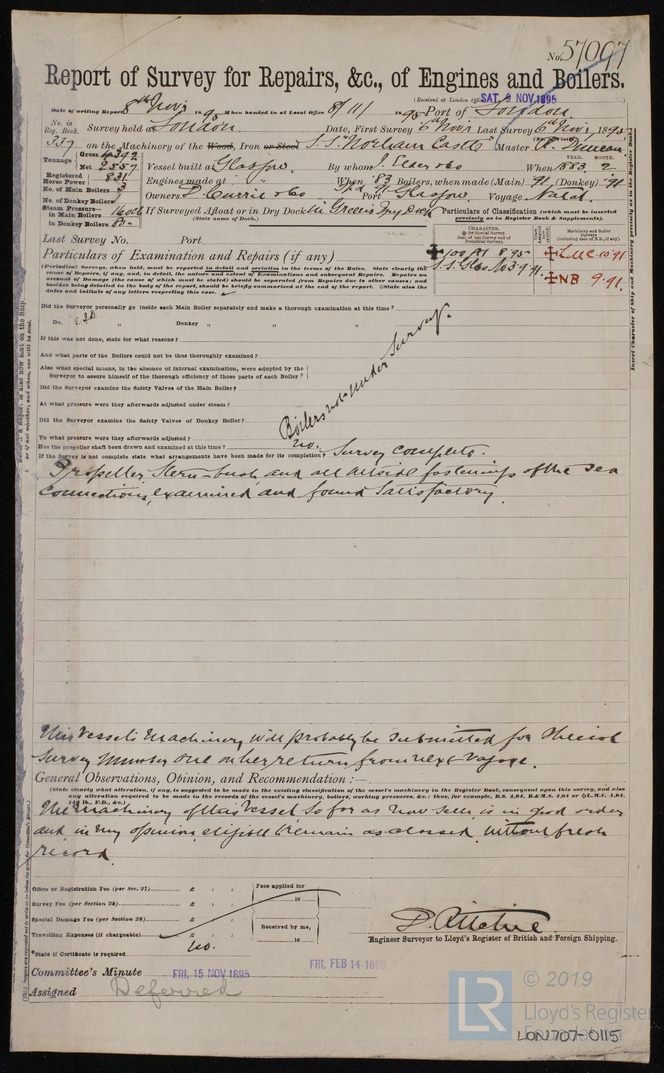 No. 57097
Report of Survey for Repairs, &c., of Engines and Boilers.
(Received at London Office SAT. 9 NOV. 1895
Date of writing Report 8th Novr 1895 When handed in at Local Office 8/11/ 1895 Port of London.
No. in Reg. Book. Survey held at London. Date, First Survey 6th Novr Last Survey 6th Novr 1895
337 on the Machinery of the Wood, Iron or Steel S.S. "Norham Castle" Master A. Duncan
Tonnage Gross 4392
Net 2557
Vessel built at Glasgow. By whom J. Elder & Co When 1883 2
Registered Horse Power 831
Engines made at " When 83 Boilers, when made (Main) 91 (Donkey) 91
No. of Main Boilers 3
No. of Donkey Boilers
Owners D. Currie & Co Port Glasgow. Voyage Natal.
Steam Pressure in Main Boilers 160 lb
in Donkey Boilers 80
If Surveyed Afloat or in Dry Dock In Green's Dry Dock
(State name of Dock.)
Particulars of Classification (which must be inserted precisely as in Register Book & Supplements).
Last Survey No. Port
CHARACTER.
for Special Survey.
Date of last Survey and of Periodical Surveys.
Machinery and Boiler Surveys
(including date of N.B., if any).
100 A1 8.95
L.M.C. 10.91
NB 9.91.
Particulars of Examination and Repairs (if any)
(Periodical Surveys, when held, must be reported in detail and seriatim in the terms of the Rules. State clearly the cause of Repairs, if any, and, in detail, the nature and extent of Examinations and subsequent Repairs. Repairs on account of Damage (the cause of which must be stated) should be separated from Repairs due to other causes; and besides being detailed in the body of the report, should be briefly summarised at the end of the report. State also the dates and initials of any letters respecting this case.
Did the Surveyor personally go inside each Main Boiler separately and make a thorough examination at this time?
Do. " Donkey " " "
If this was not done, state for what reasons?
And what parts of the Boilers could not be thoroughly examined?
Also what special means, in the absence of internal examination, were adopted by the Surveyor to assure himself of the thorough efficiency of those parts of each Boiler?
Did the Surveyor examine the Safety Valves of the Main Boiler?
At what pressure were they afterwards adjusted under steam?
Did the Surveyor examine the Safety Valves of Donkey Boiler?
To what pressure were they afterwards adjusted?
Boilers not under Survey.
Has the propeller shaft been drawn and examined at this time? No.
If the Survey is not complete state what arrangements have been made for its completion Survey complete.
Propeller, Stern-bush and all outside fastenings of the sea
connections, examined and found Satisfactory
This Vessel's Machinery will probably be Submitted for Special
Survey Number One on her return from next Voyage.
General Observations, Opinion, and Recommendation:—
(State clearly what alteration, if any, is suggested to be made in the existing classification of the vessel's machinery in the Register Book, consequent upon this survey, and also any alteration required to be made in the records of the vessel's machinery, boilers, working pressures, &c.: thus, for example, B.S. 4,94, B.&M.S. 4,94 or L.M.C. 4,94,
The machinery of this Vessel So far as now seen is in good order
and in my opinion eligible to remain as classed, without fresh
record.
Office or Registration Fee (per Sec. 27)
Survey Fee (per Section 28)
Special Damage Fee (per Section 28)
Travelling Expenses (if chargeable)
Fees applied for
18
Received by me,
18
No.
*State if Certificate is required
D. Ritchie
Engineer Surveyor to Lloyd's Register of British and Foreign Shipping.
Committee's Minute FRI. 15 NOV. 1895 FRI. FEB 14 1896
Assigned Deferred
LR
© 2019
Lloyd's Register
Foundation
LON707-0115